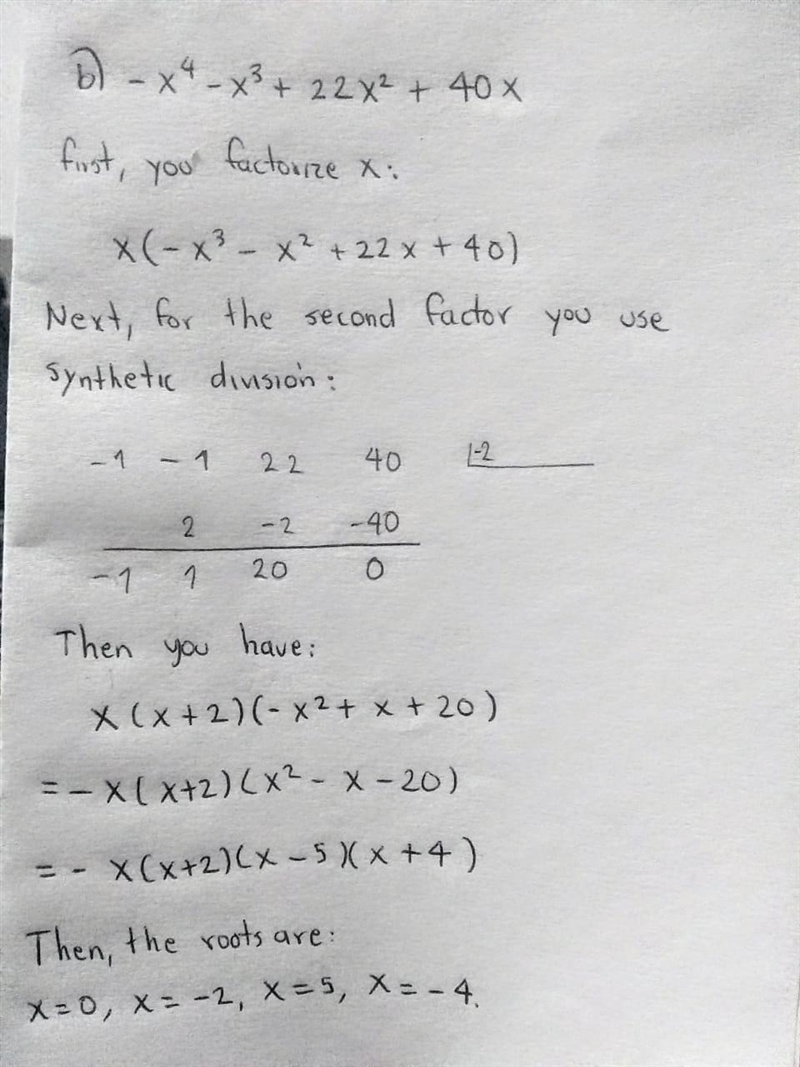 b) -x⁴ - x³ + 22x² + 40x
first, you factorize x:
x(-x³ - x² + 22x + 40)
Next, for the second factor you use
synthetic division:
-1 -1 22 40 |-2
2 -2 -40
-1 1 20 0
Then you have:
x(x+2)(-x² + x + 20)
= -x(x+2)(x² - x - 20)
= - x(x+2)(x-5)(x+4)
Then, the roots are:
x=0, x=-2, x=5, x=-4.